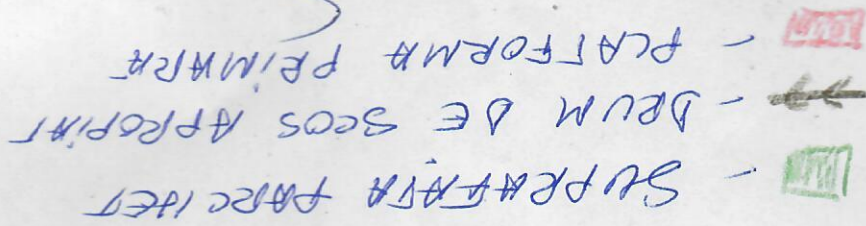 - SUPRAFAȚA PARCHET
- DRUM DE SCOS APROPIAT
- PLATFORMA PRIMARĂ